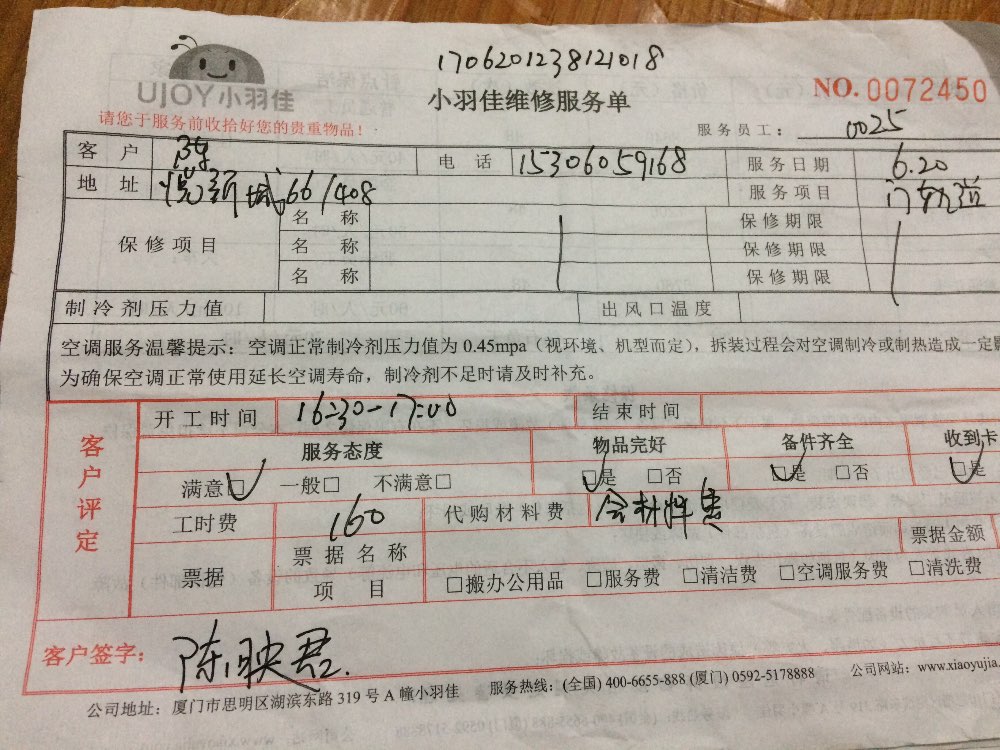 1706201238121018
UJOY小羽佳
小羽佳维修服务单
NO. 0072450
请您于服务前收拾好您的贵重物品！
服务员工： 0025
客户 陈 电话 15306059168 服务日期 6.20
地址 悦新城66/408 服务项目 门
保修项目 名称 保修期限
名称 保修期限
名称 保修期限
制冷剂压力值 出风口温度
空调服务温馨提示：空调正常制冷剂压力值为 0.45mpa（视环境、机型而定），拆装过程会对空调制冷或制热造成一定
为确保空调正常使用延长空调寿命，制冷剂不足时请及时补充。
客户评定
开工时间 16:30-17:00 结束时间
服务态度 物品完好 备件齐全 收到卡
满意□ 一般□ 不满意□ □是 □否 □是 □否 □是
工时费 160 代购材料费 含材料费
票据 票据名称 票据金额
项目 □搬办公用品 □服务费 □清洁费 □空调服务费 □清洗费
客户签字： 陈映君
公司地址：厦门市思明区湖滨东路 319 号 A 幢小羽佳 服务热线：(全国) 400-6655-888 (厦门) 0592-5178888 公司网站：www.xiaoyujia.